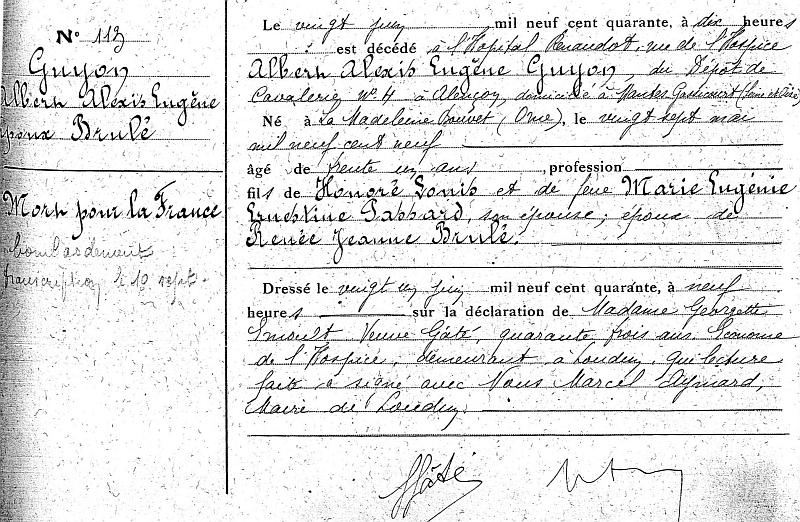 N° 113
Guyon
Albert Alexis Eugène
époux Brulé
Mort pour la France
bombardement
transcription le 10 sept.
Le vingt juin, mil neuf cent quarante, à dix heures
est décédé à l'Hopital Renaudot, rue de l'Hospice
Albert Alexis Eugène Guyon, du Dépôt de
Cavalerie N° 4 à Alençon, domicilié à Mantes Gassicourt (Seine et Oise)
Né à La Madeleine Bouvet (Orne), le vingt sept mai
mil neuf cent neuf
âgé de trente un ans, profession
fils de Honoré Louis et de feue Marie Eugénie
Ernestine Passard, son épouse; époux de
Renée Jeanne Brulé.
Dressé le vingt un juin mil neuf cent quarante, à neuf
heures sur la déclaration de Madame Georgette
Emoult Veuve Gâté, quarante trois ans, Econome
de l'Hospice, demeurant à Loudun, qui lecture
faite a signé avec Nous Marcel Aymard,
Maire de Loudun.
Gâté